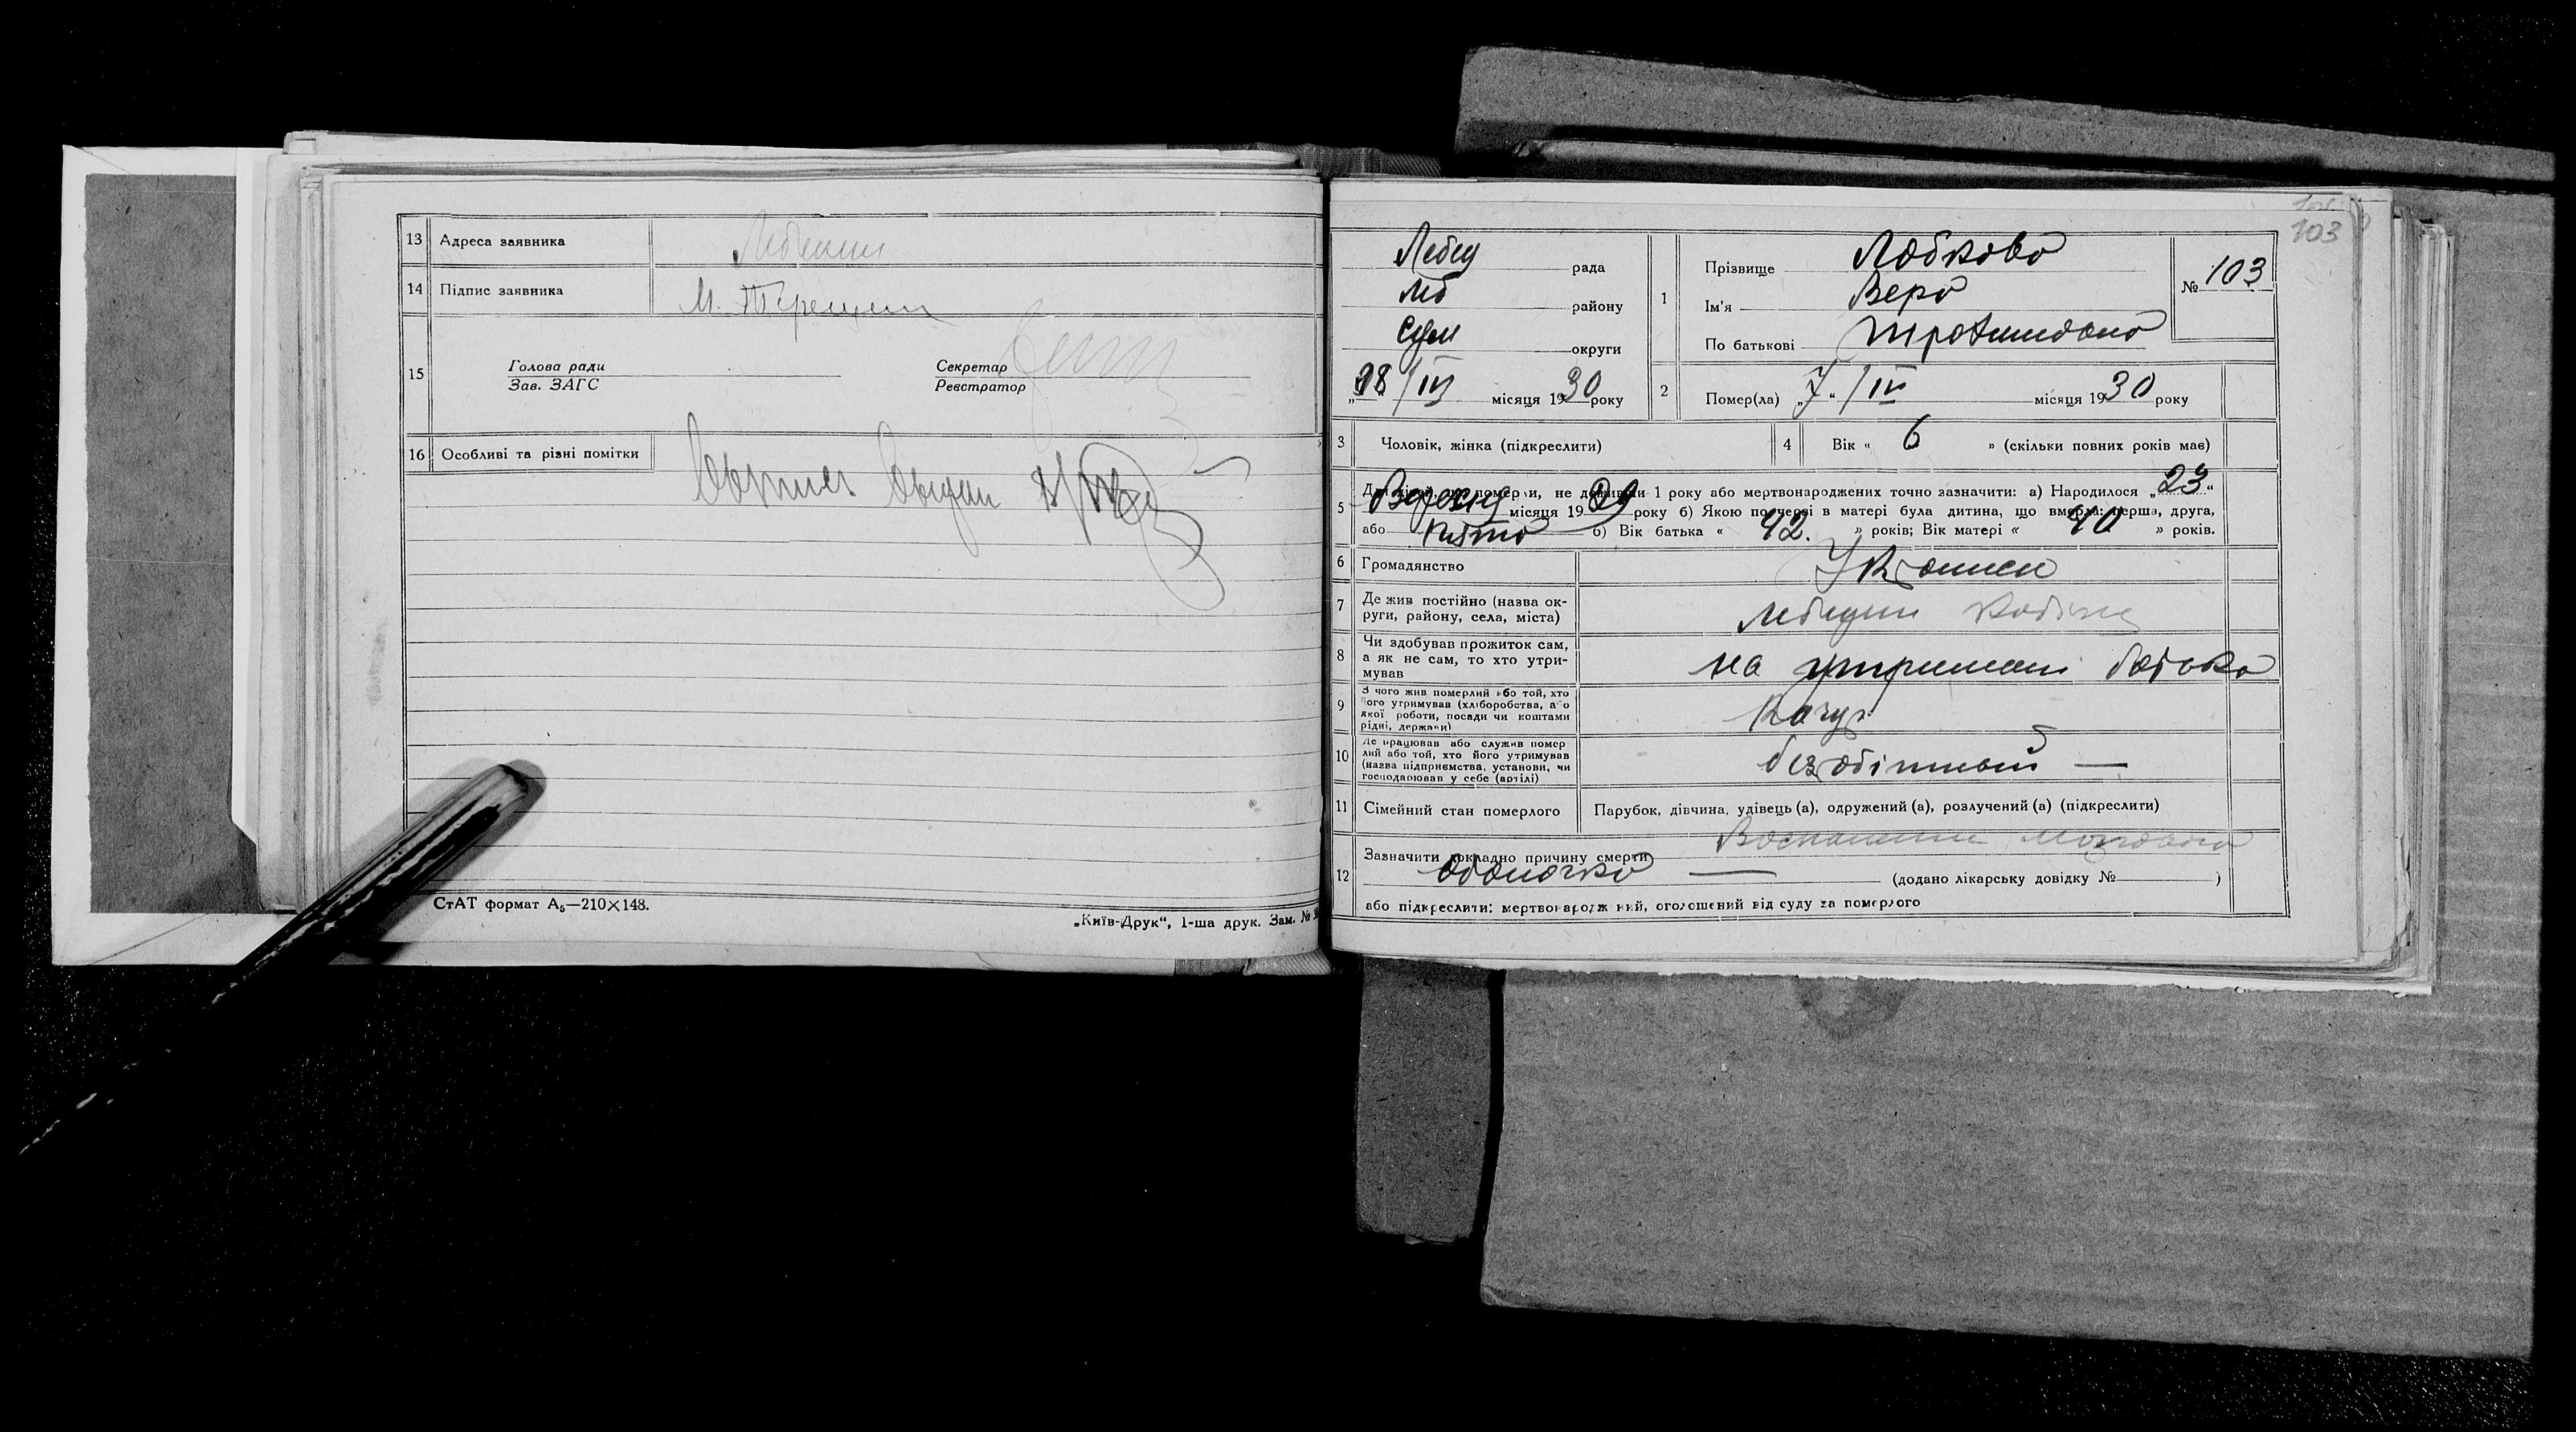 13 Адреса заявника
14 Підпис заявника М. Терещен
15 Голова ради Секретар
Зав. ЗАГС Реєстратор
16 Особливі та різні помітки
СтАТ формат А₅—210×148.
„Київ-Друк“, 1-ша друк. Зам. №
103
Лебед рада
Леб району
Сум округи
18/III місяця 1930 року
1 Прізвище Лобкова
Ім'я Вера
По батькові Трохимовна
№ 103
2 Помер(ла) „7“/III місяця 1930 року
3 Чоловік, жінка (підкреслити)
4 Вік « 6 » (скільки повних років має)
5 Для дітей, що померли, не доживши 1 року або мертвонароджених точно зазначити: а) Народилося „23“
місяця 1929 року б) Якою по черзі в матері була дитина, що вмерла: перша, друга,
або п'ята в) Вік батька « 42. » років; Вік матері « 40 » років.
6 Громадянство Украинец
7 Де жив постійно (назва ок-
руги, району, села, міста) Лебедин
8 Чи здобував прожиток сам,
а як не сам, то хто утри-
мував на утримані батька
9 З чого жив померлий або той, хто
його утримував (хліборобства, або
якої роботи, посади чи коштами
рідні, держави)
10 Де працював або служив помер
лий або той, хто його утримував
(назва підприємства, установи, чи
господарював у себе (артілі) безробітный —
11 Сімейний стан померлого Парубок, дівчина, удівець (а), одружений (а), розлучений (а) (підкреслити)
12 Зазначити докладно причину смерти Воспаление мозговой
оболочки — (додано лікарську довідку № )
або підкреслити: мертвонароджений, оголошений від суду за померлого